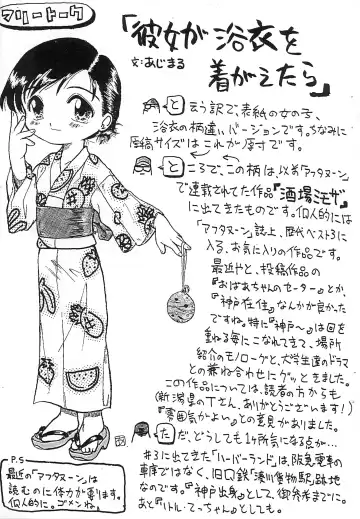 フリートーク
「彼女が浴衣を
着がえたら」
文:あじまる
と云う訳で、表紙の女の子、
浴衣の柄違いバージョンです。ちなみに
原稿サイズはこれが原寸です。
ところで、この柄は、以前「アフタヌーン」
で連載されてた作品『酒場ミモザ』
に出てきたものです。個人的には
「アフタヌーン」誌上、歴代ベスト3に
入る、お気に入りの作品です。
最近やと、投稿作品の
『おばあちゃんのセーター』とか、
『神戸在住』なんかが良かった
ですね。特に『神戸〜』は回を
重ねる毎にこなれてきて、場所
紹介のモノローグと、大学生達のドラマ
との兼ね合わせにグッときました。
この作品については、読者の方からも
(新潟県のTさん、ありがとうございます!)
『雰囲気がよい』との意見がありました。
ただ、どうしても1ヶ所気になる点が…
#3に出てきた「ハーバーランド」は、阪急電車の
車庫ではなく、旧国鉄「湊川貨物駅」跡地
なのです。『神戸出身』として、御参考までに。
あと『リトル・てっちゃん』としても。
P.S
最近の「アフタヌーン」は
読むのに体力が要ります。
個人的に。ゴメンね。